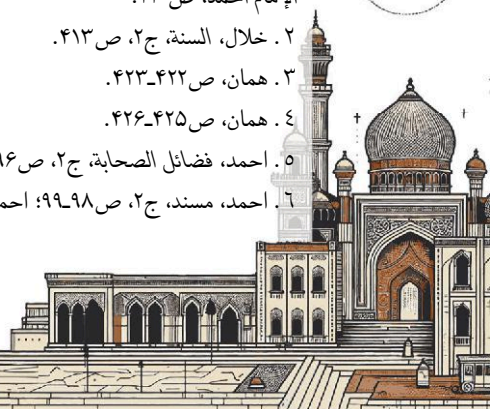 الإمام احمد، ص
۲. خلال، السنة، ج۲، ص۴۱۳.
۳. همان، ص۴۲۲ـ۴۲۳.
٤. همان، ص۴۲۵ـ۴۲۶.
۵. احمد، فضائل الصحابة، ج۲، ص
٦. احمد، مسند، ج۲، ص۹۸ـ۹۹؛ احمد